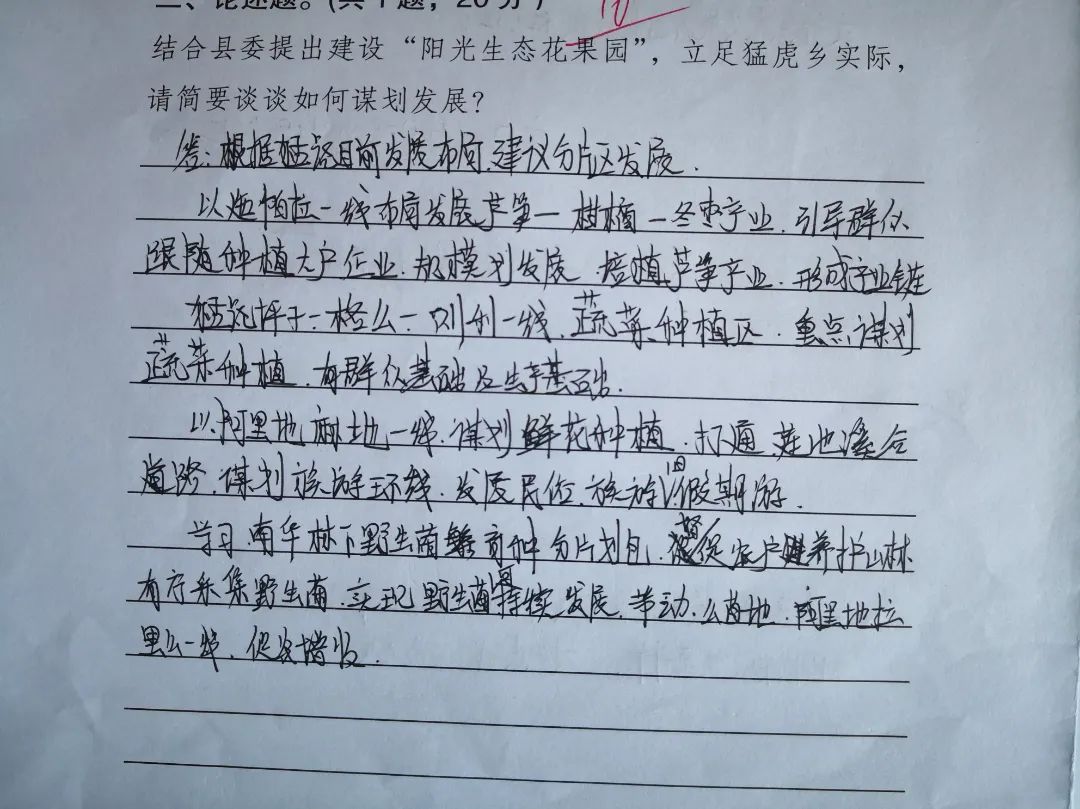 二、论述题。(共1题，20分)
10
结合县委提出建设“阳光生态花果园”，立足猛虎乡实际，
请简要谈谈如何谋划发展？
答：根据 目前发展布局，建议分片区发展．
以 帕拉一线布局发展芦笋一柑橘一冬枣产业．引导群众
跟随种植大户企业．规模划发展 培植芦笋产业．形成产业链
一格么一 利一线．蔬菜种植区．重点谋划
蔬菜种植．有群众基础及生产基础．
以阿里地麻地一线．谋划鲜花种植．打通 地
道路．谋划旅游环线．发展民俗．旅游 假期游．
学习南华林下野生菌繁育种 分片划包．督促农户 养护山林
有序采集野生菌．实现野生菌可持续发展．带动．么苗地．阿里地拉
里么一线．促农增收．